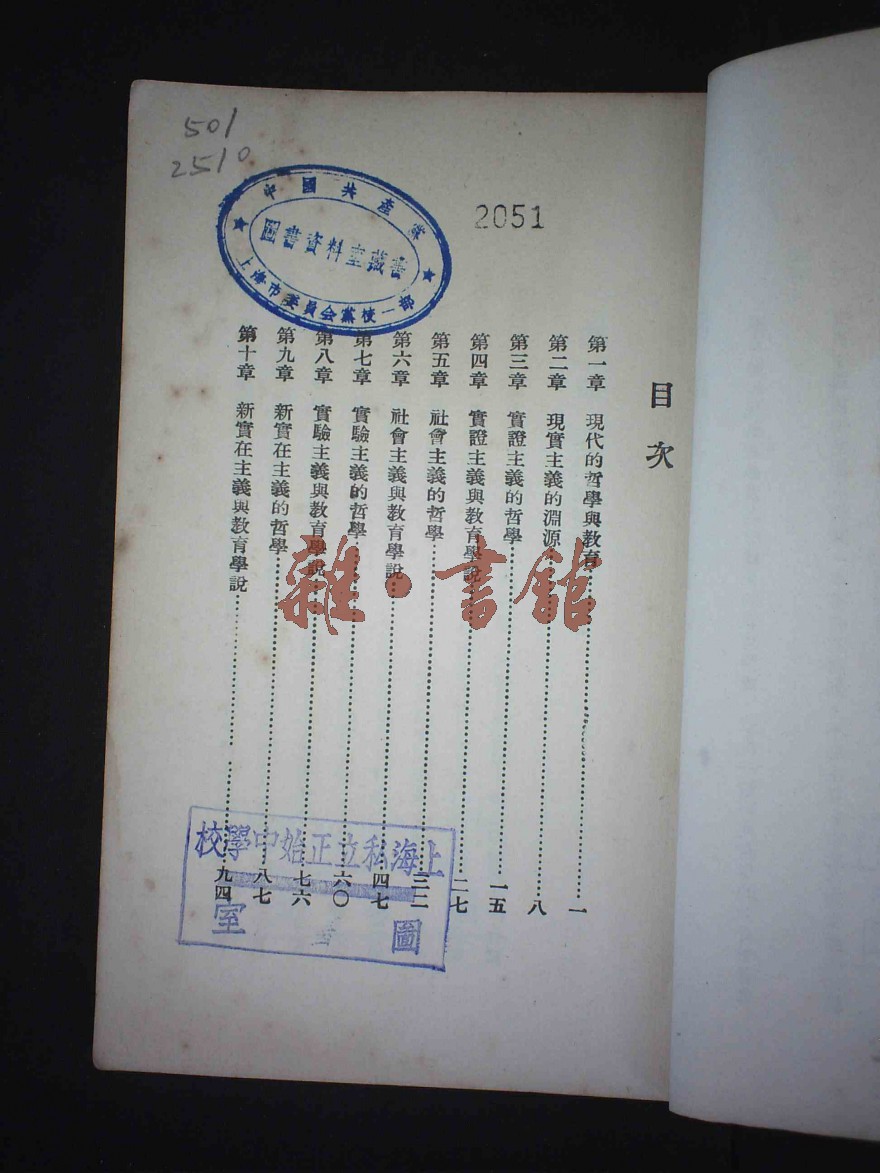 501
2510
中國共產黨
圖書資料室藏書
上海市委員會黨校一部
2051
目次
第一章 現代的哲學與教育……一
第二章 現實主義的淵源……八
第三章 實證主義的哲學……一五
第四章 實證主義與教育學說……二七
第五章 社會主義的哲學……三二
第六章 社會主義與教育學說……四七
第七章 實驗主義的哲學……六〇
第八章 實驗主義與教育學說……七六
第九章 新實在主義的哲學……八七
第十章 新實在主義與教育學說……九四
雜·書館
上海私立正始中學校
圖書室